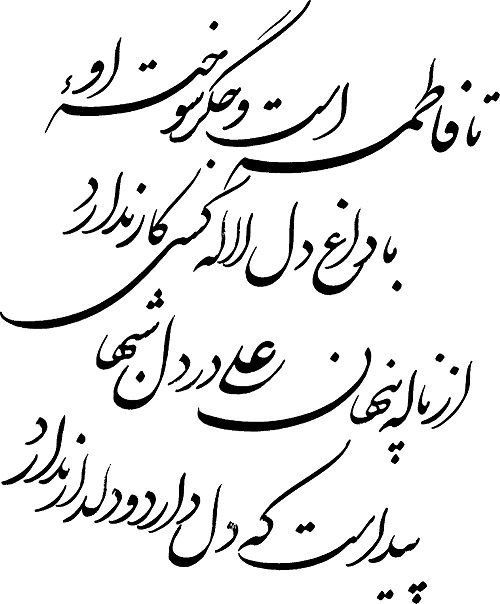 تا فاطمه است و جگر سوختهٔ او
با داغ دل لاله کسی کار ندارد
از ناله پنهان علی در دل شبها
پیداست که دل دارد و دلدار ندارد